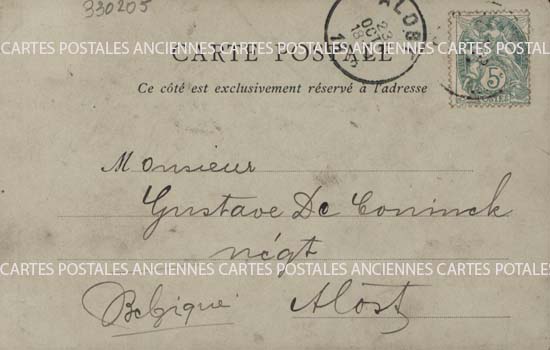 330205
CARTE POSTALE
Ce côté est exclusivement réservé à l'adresse
CARTES POSTALES ANCIENNES CARTES POSTALES ANCIENNES CARTES POSTALES
Monsieur
Gustave De Coninck
négt
CARTES POSTALES ANCIENNES CARTES POSTALES ANCIENNES CARTES POTALES
Belgique Alost
ALOST
23
OCT
5c
POSTES